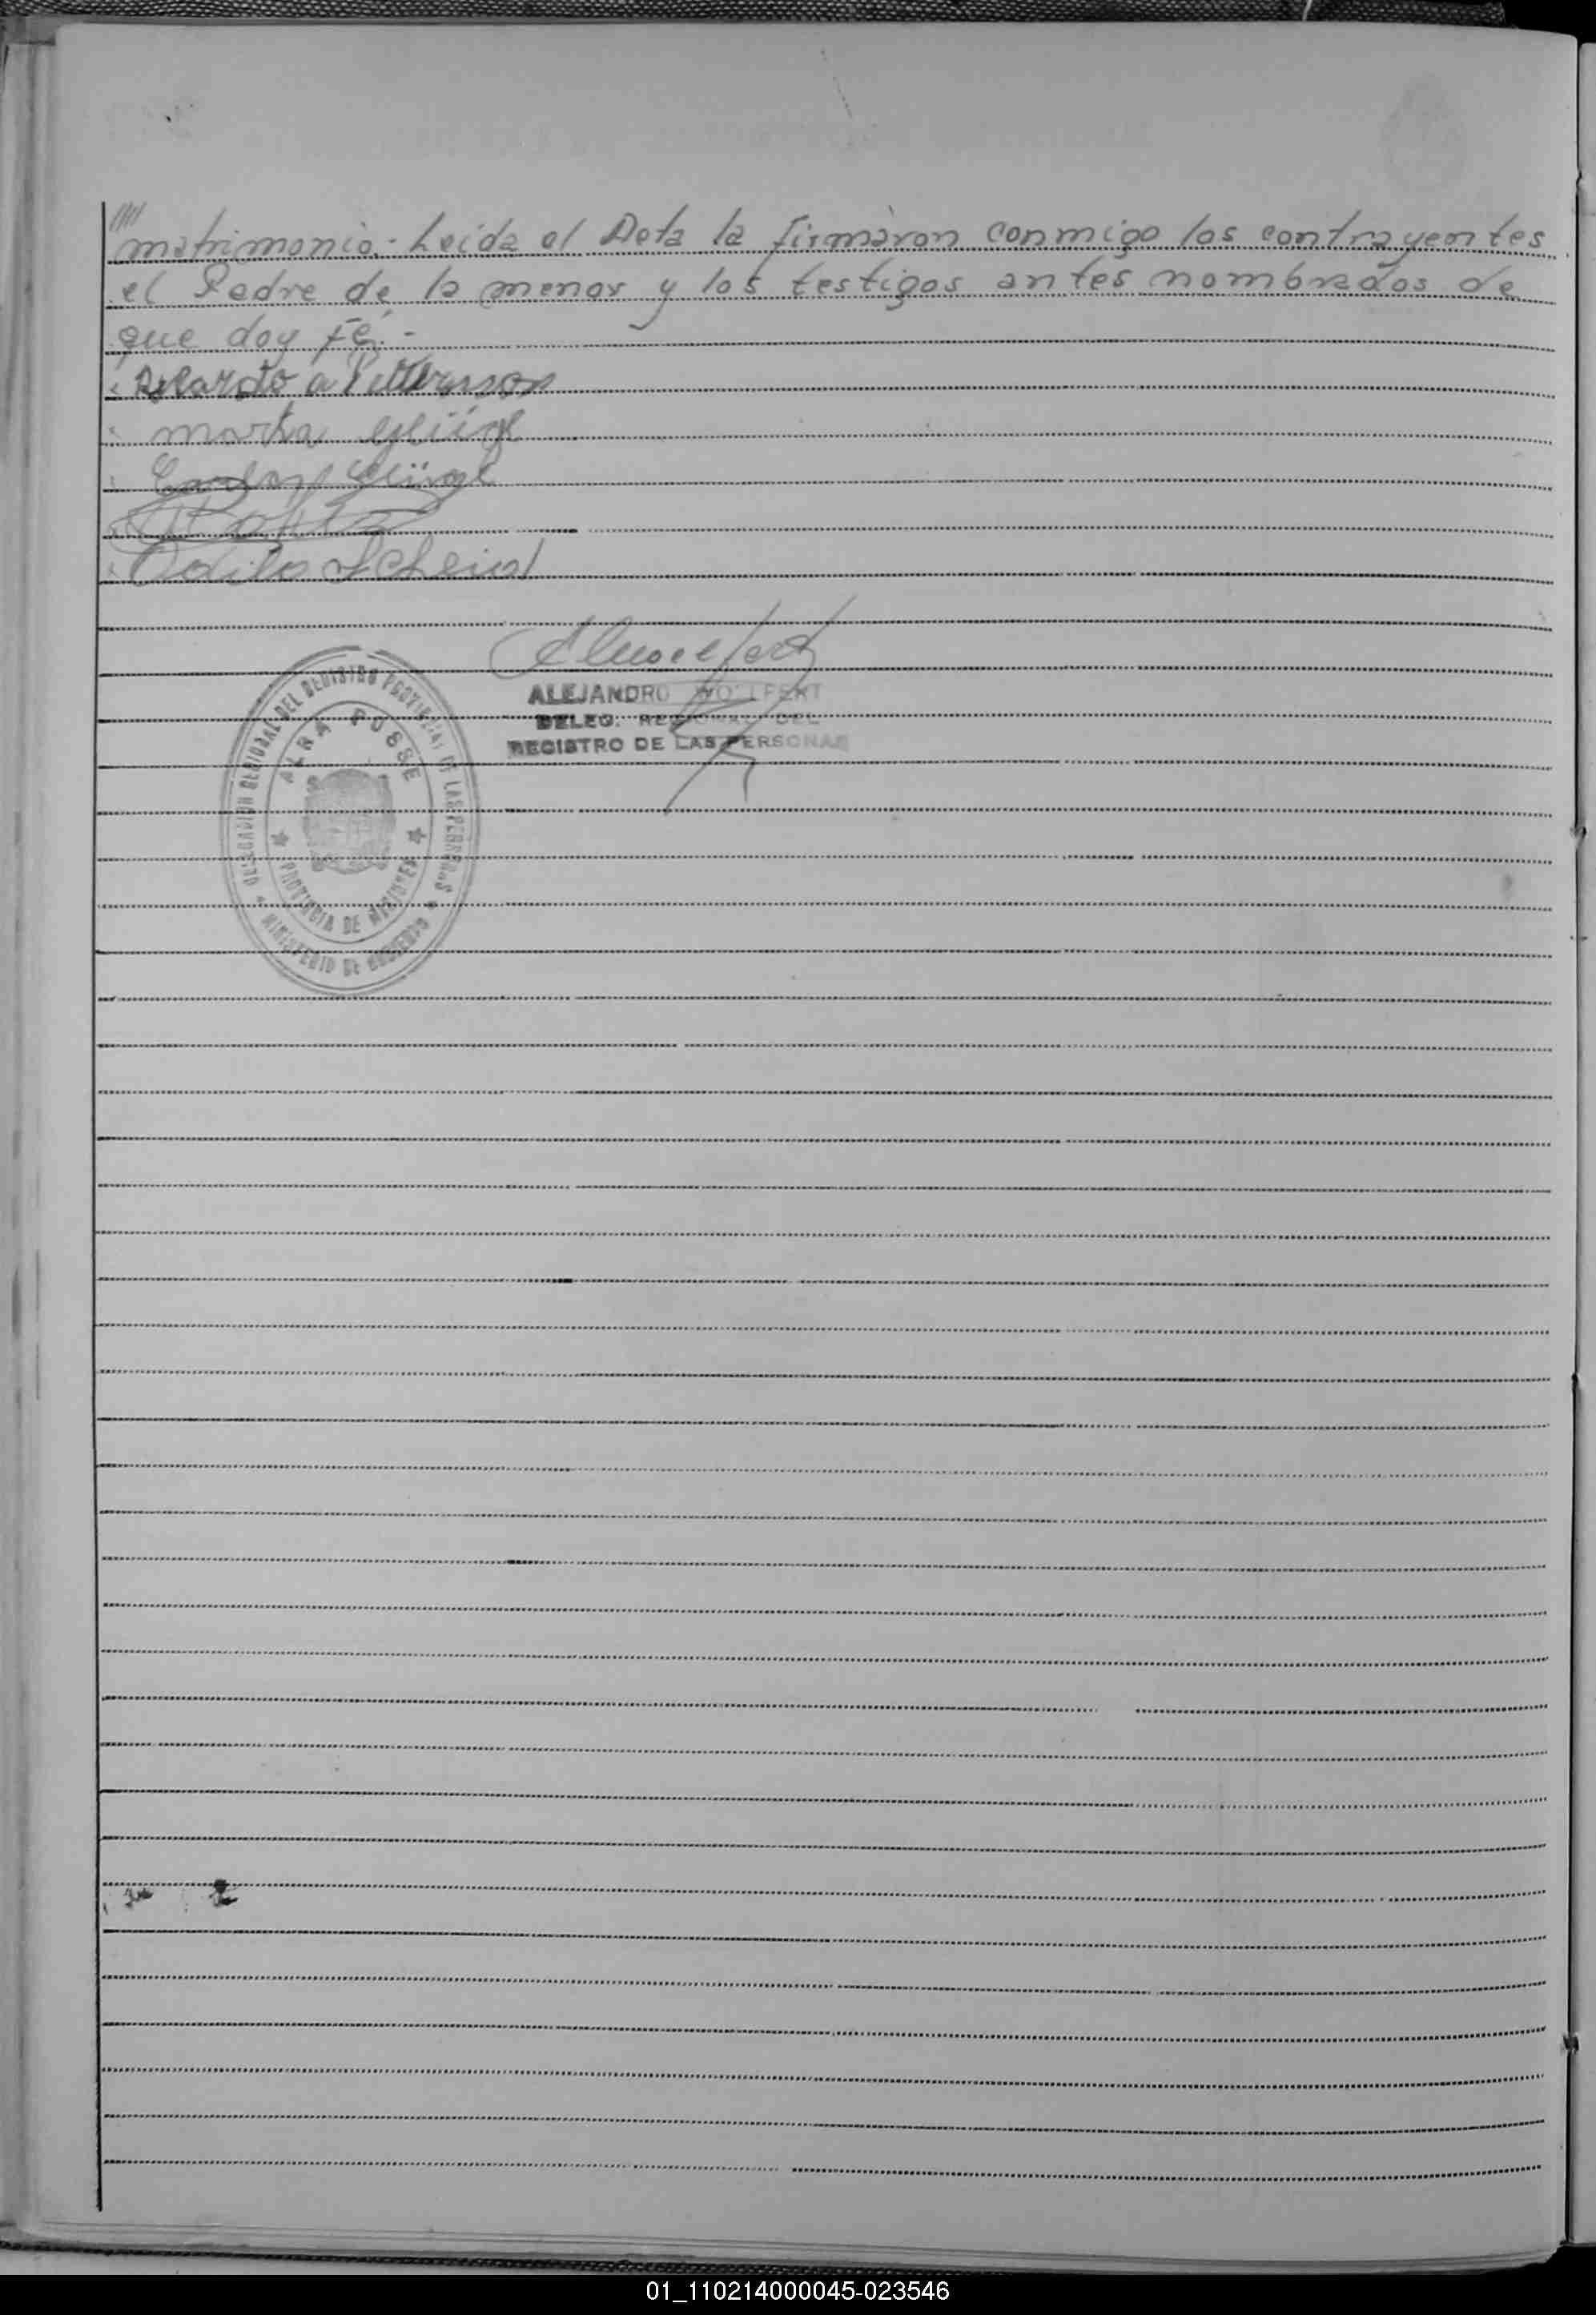 //// matrimonio.- Leida el Acta la firmaron conmigo los contrayentes
el Padre de la menor y los testigos antes nombrados de
que doy fé.-
Ricardo a Pettersson
marta Glüge
Carlos Glüge
Odilo Schein
ALEJANDRO WOLLFERT
DELEG. REGIONAL DEL
REGISTRO DE LAS PERSONAS
DELEGACION REGIONAL DEL REGISTRO PROVINCIAL DE LAS PERSONAS
ALBA POSSE
PROVINCIA DE MISIONES
MINISTERIO DE GOBIERNO
01_110214000045-023546